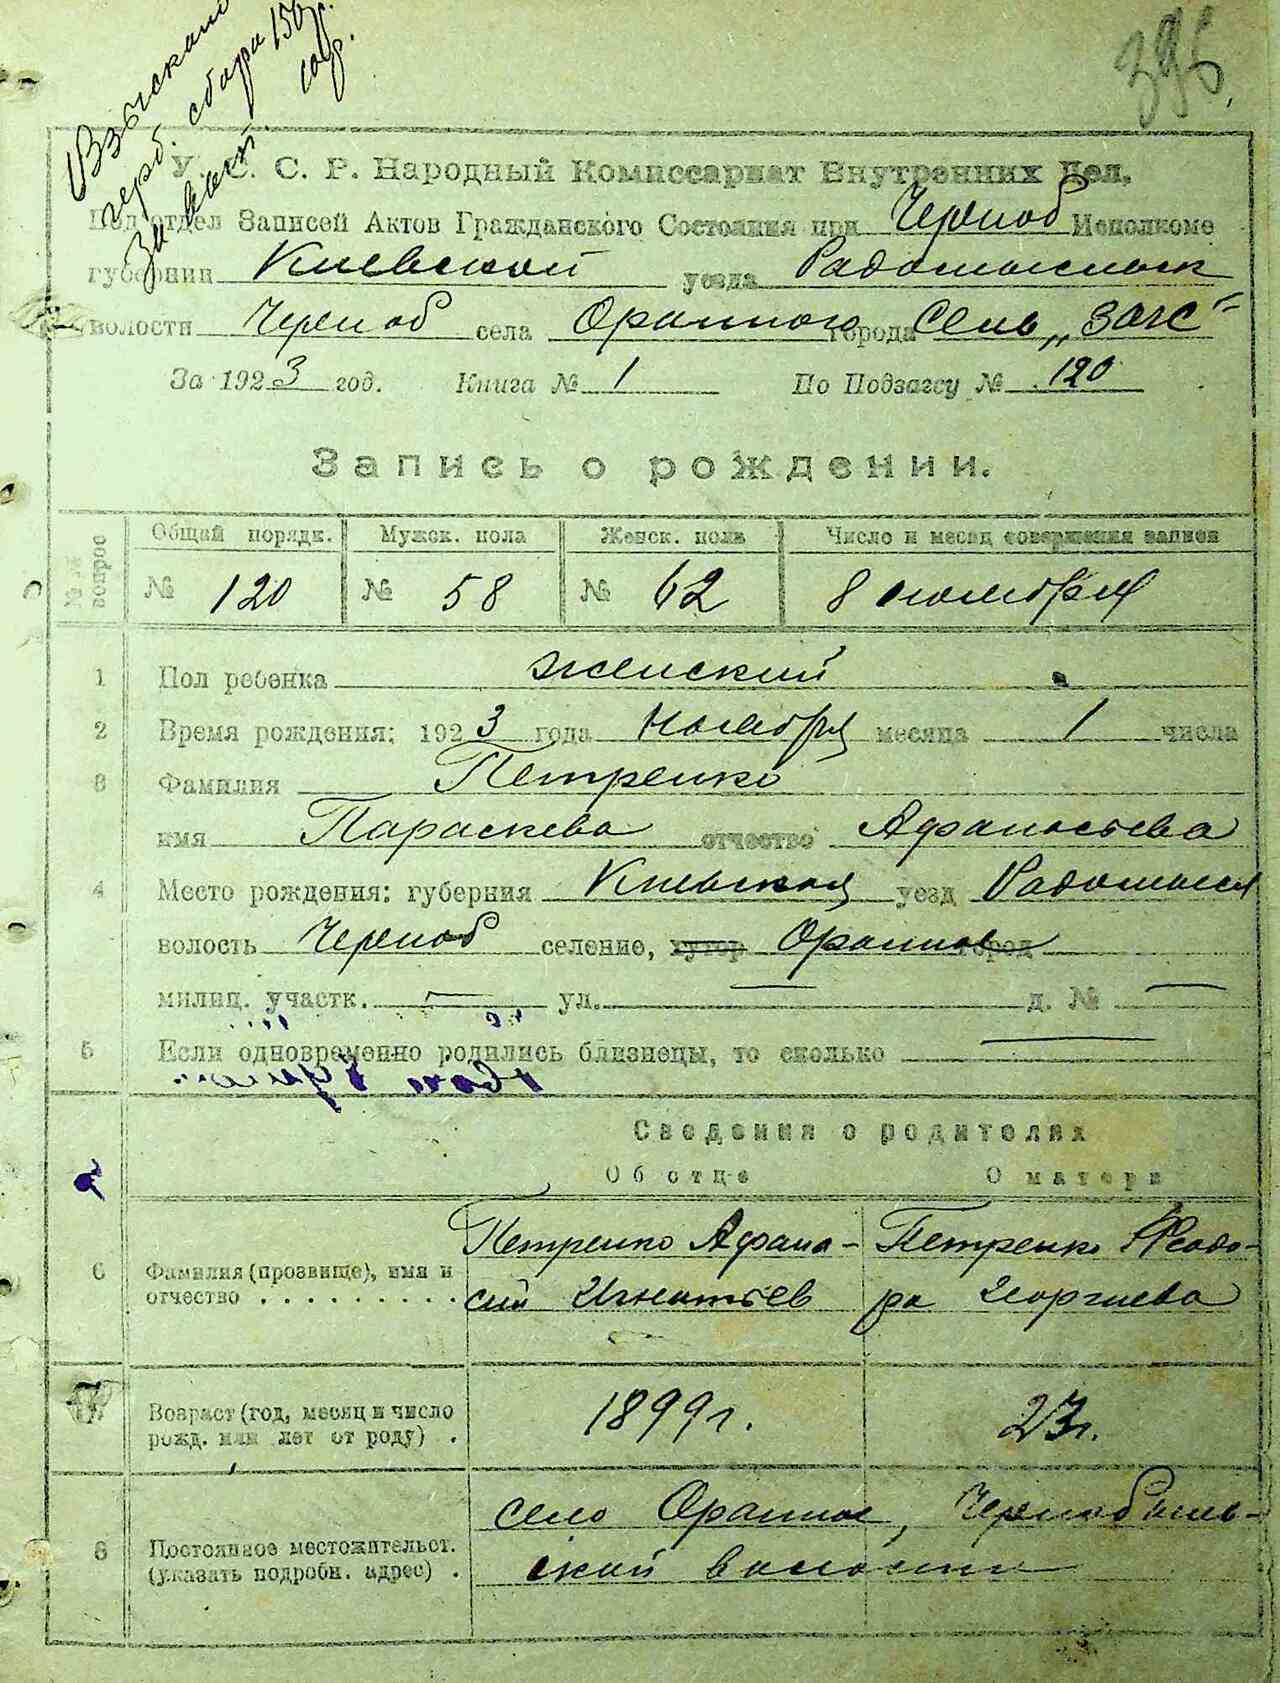 Взыскано
герб. сбора 15 р.
396
У. С. С. Р. Народный Комиссариат Внутренних Дел,
Под'отдел Записей Актов Гражданского Состояния при Черноб Исполкоме
губернии Киевской уезда Радомысльск
волости Черноб села Оранного города Сель „ЗАГС"
За 1923 год. Книга № 1 По Подзагсу № 120
Запись о рождении.
№№ вопрос
Общий порядк. Мужск. пола Женск. пола Число и месяц совершения записи
№ 120 № 58 № 62 8 ноября
1 Пол ребенка женский
2 Время рождения: 1923 года Ноября месяца 1 числа
3 Фамилия Петренко
имя Параскева отчество Афанасьева
4 Место рождения: губерния Киевская уезд Радомысл
волость Черноб селение, хутор Оранное город
милиц. участк. — ул. — д. № —
5 Если одновременно родились близнецы, то сколько —
Сведения о родителях
Об отце О матери
6 Фамилия (прозвище), имя и
отчество . . . . . . . . .
Петренко Афана-
сий Игнатьев
Петренко Феодо-
ра Георгиева
7 Возраст (год, месяц и число
рожд. или лет от роду) .
1899 г. 23 г.
8 Постоянное местожительст.
(указать подробн. адрес) .
село Оранное, Чернобыль-
ской волости